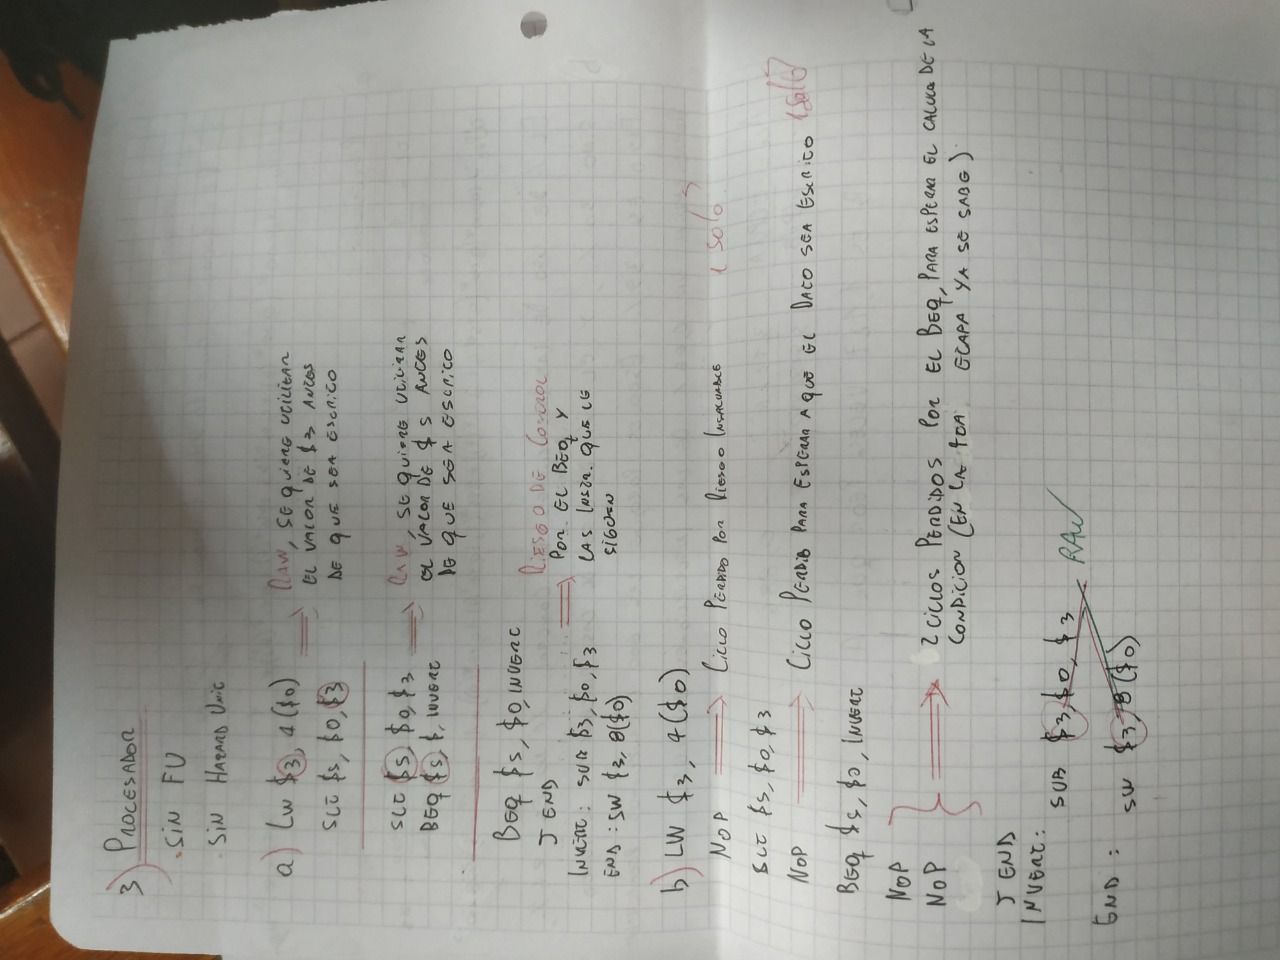 3) PROCESADOR
. SIN FU
. SIN HAZARD UNIT
a) LW $3, 4($0)
SLT $S, $0, $3
⟹ RAW, SE QUIERE UTILIZAR
EL VALOR DE $3 ANTES
DE QUE SEA ESCRITO
SLT $S, $0, $3
BEQ $S, $, INVERT
⟹ RAW, SE QUIERE UTILIZAR
EL VALOR DE $S ANTES
DE QUE SEA ESCRITO
BEQ $S, $0, INVERT
J END
INVERT: SUB $3, $0, $3
END: SW $3, 8($0)
⟹ RIESGO DE CONTROL
POR EL BEQ Y
LAS INSTR. QUE LE
SIGUEN
b) LW $3, 4($0)
NOP ⟹ CICLO PERDIDO POR RIESGO INSALVABLE 1 solo?
SLT $S, $0, $3
NOP ⟹ CICLO PERDIDO PARA ESPERAR A QUE EL DATO SEA ESCRITO 1 solo?
BEQ $S, $0, INVERT
NOP
NOP
⟹ 2 CICLOS PERDIDOS POR EL BEQ, PARA ESPERAR EL CALCULO DE LA
CONDICION (EN LA 4TA ETAPA YA SE SABE)
J END
INVERT: SUB $3, $0, $3
END: SW $3, 8($0)
RAW